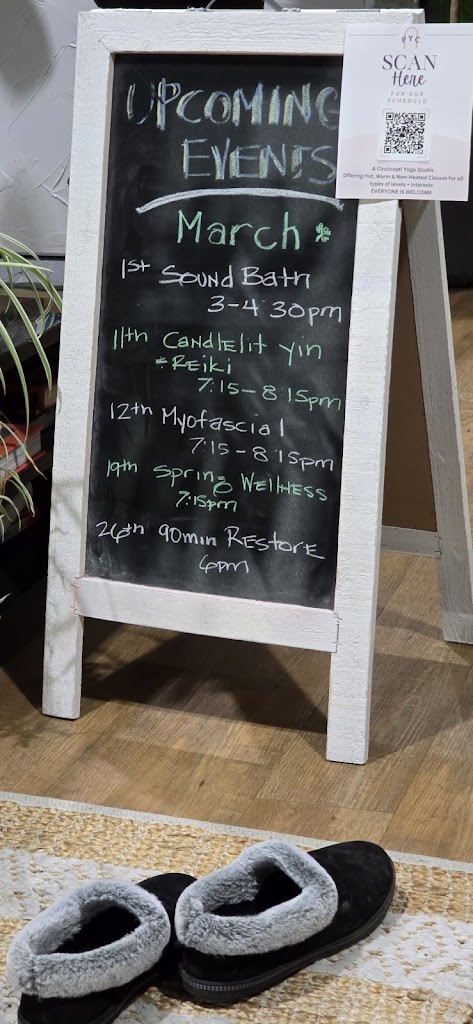 UPCOMING
EVENTS
March
1st Sound Bath
3-4 30pm
11th Candlelit Yin
+ Reiki
7:15-8 15pm
12th Myofascial
7:15-8 15pm
19th Spring Wellness
7:15pm
26th 90min Restore
6pm
PYC
SCAN
Here
FOR OUR
SCHEDULE
A Cincinnati Yoga Studio
Offering Hot, Warm & Non-Heated Classes for all
types of levels + interests
EVERYONE IS WELCOME